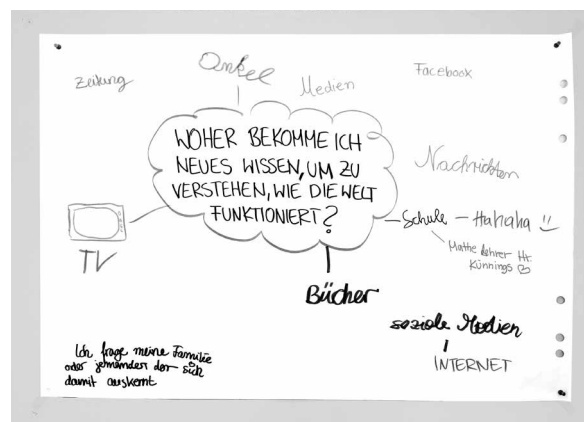 Zeitung
Onkel
Medien
Facebook
WOHER BEKOMME ICH
NEUES WISSEN, UM ZU
VERSTEHEN, WIE DIE WELT
FUNKTIONIERT?
Nachrichten
Schule – Hahaha
Mathe Lehrer Hr.
Künnings
TV
Bücher
soziale Medien
INTERNET
Ich frage meine Familie
oder jemanden der sich
damit auskennt